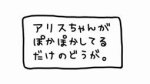 アリスちゃんが
ぽかぽかしてる
だけのどうが。